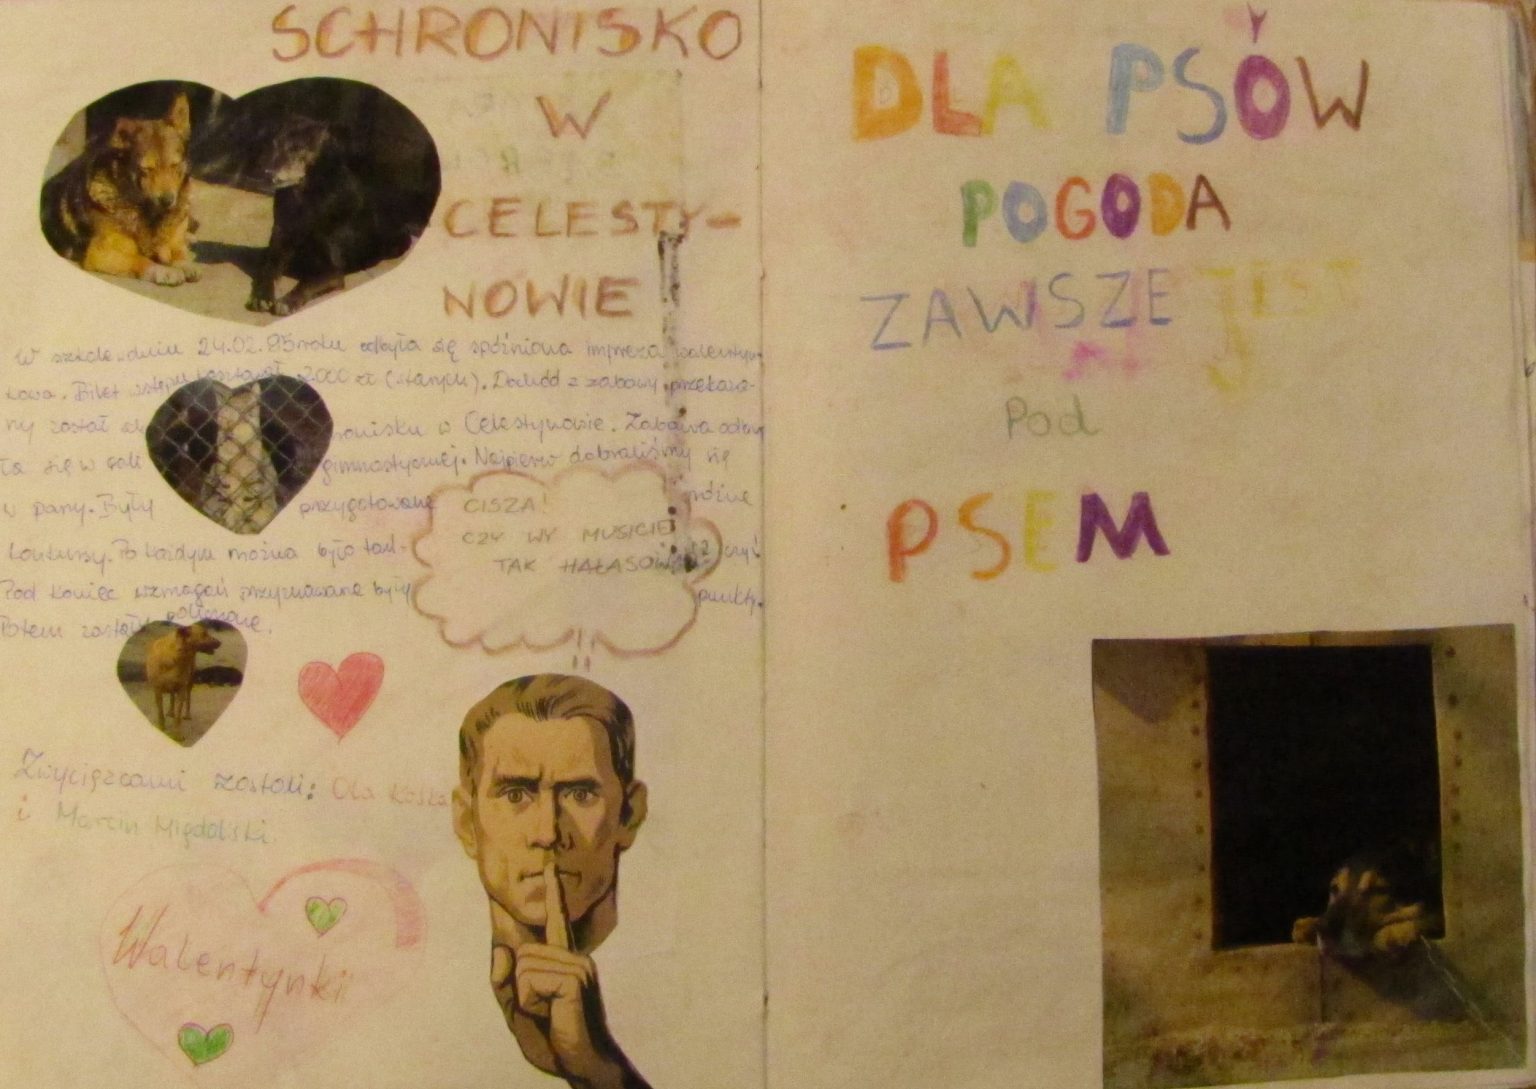 SCHRONISKO
W
CELESTY-
NOWIE
W szkole w dniu 24.02.95 roku odbyła się spóźniona impreza walentyn-
kowa. Bilet wstępu kosztował 2000 zł (starych). Dochód z zabawy przekaza-
ny został w Celestynowie. Zabawa odby
ła się w sali gimnastycznej. Najpierw dobraliśmy się
w pary. Były przygotowane różne
konkursy. Po każdym można było
Pod koniec wzmagań przyznawane były punkty.
Potem zostały policzone.
CISZA!
CZY WY MUSICIE
TAK HAŁASOWAĆ?
Zwycięzcami zostali: Ola Kośka
i Marcin Migdalski.
Walentynki
DLA PSÓW
POGODA
ZAWSZE JEST
Pod
PSEM